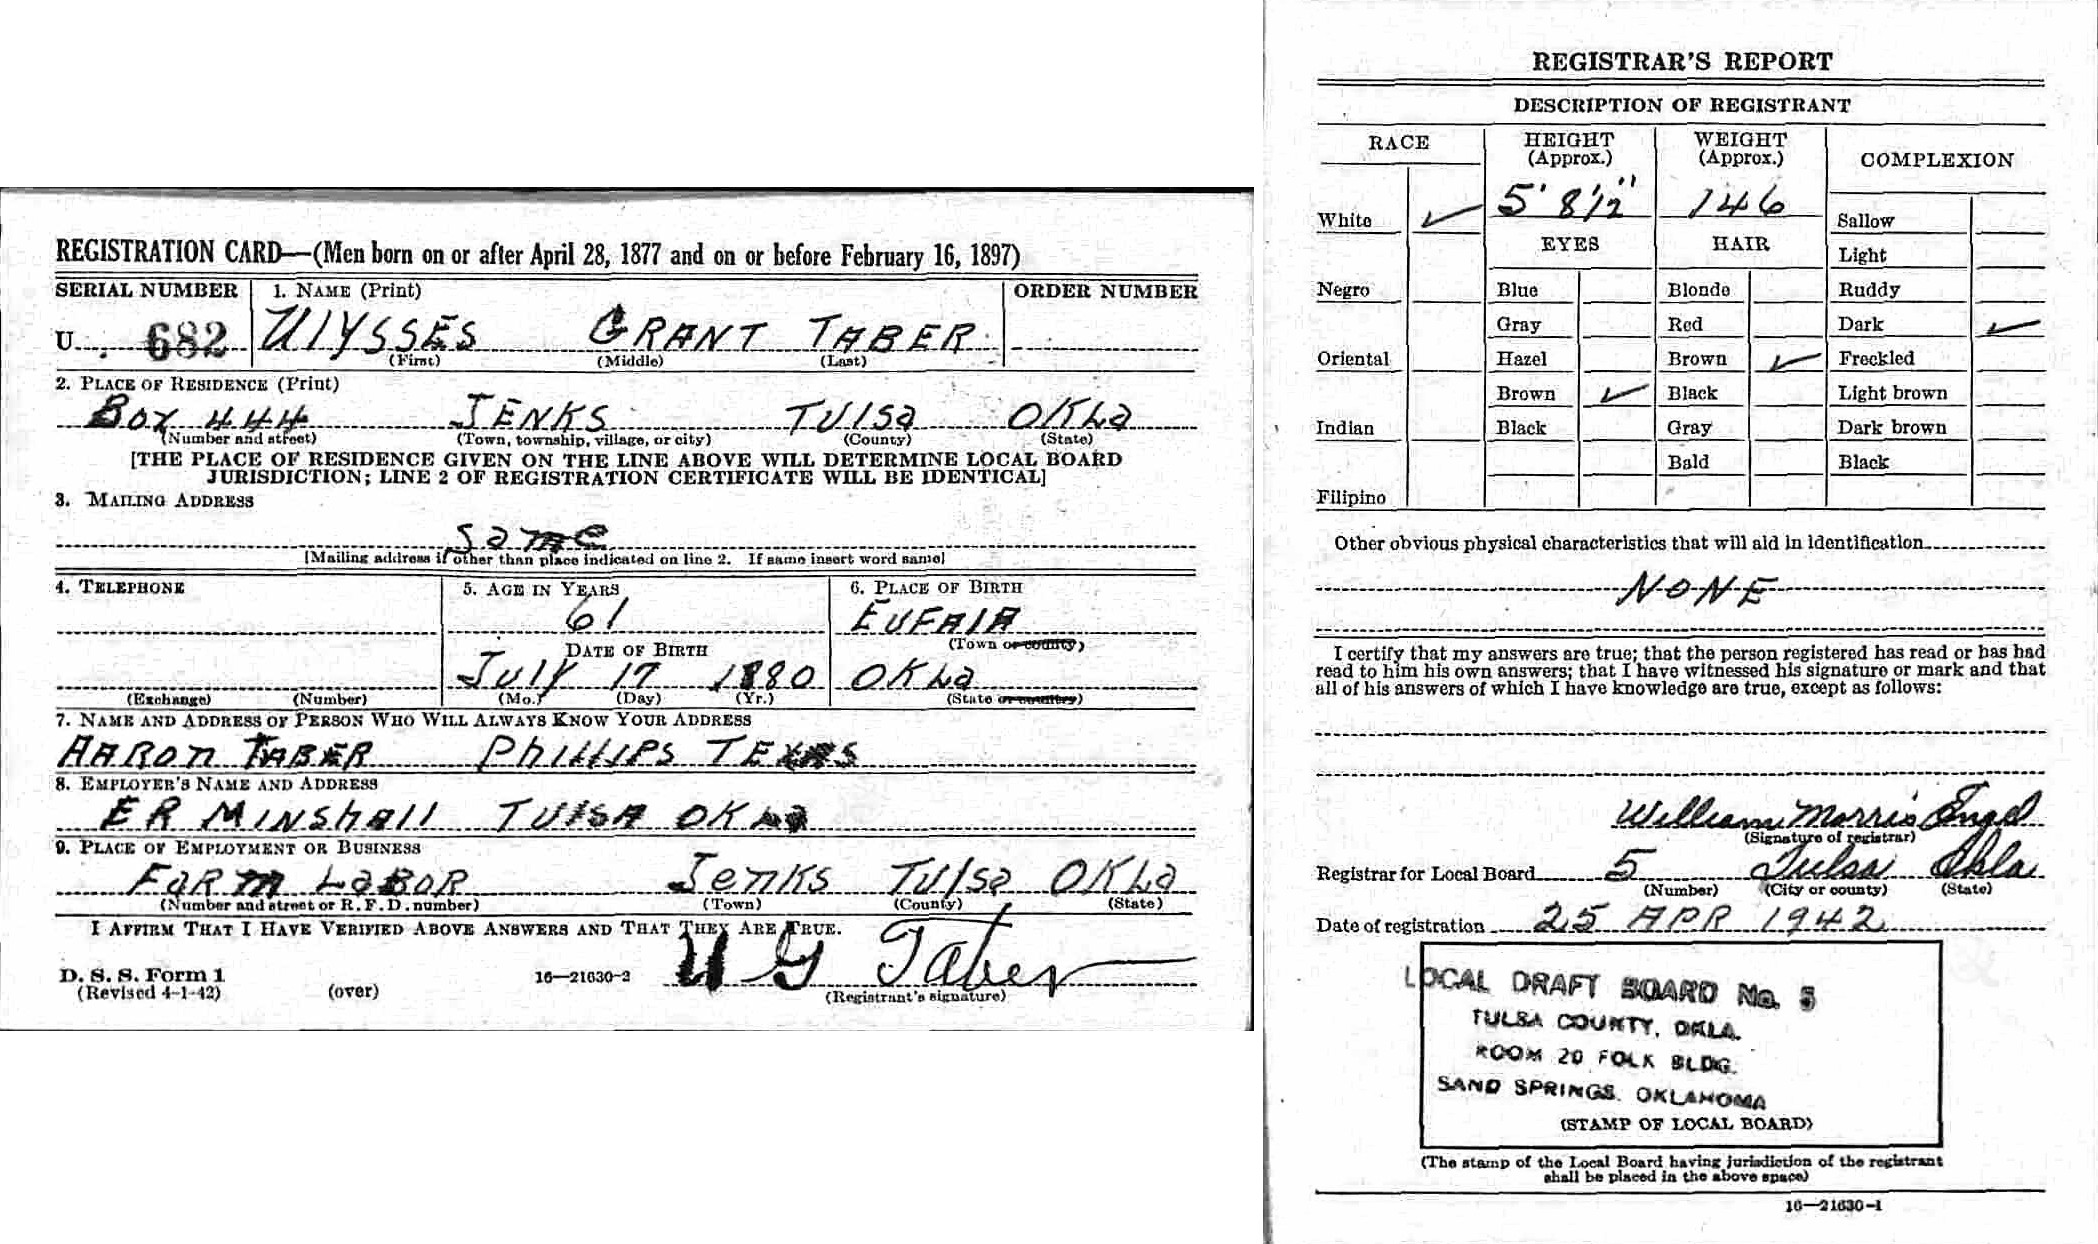 REGISTRATION CARD—(Men born on or after April 28, 1877 and on or before February 16, 1897)
SERIAL NUMBER 1. NAME (Print) ORDER NUMBER
U 682 ULYSSES GRANT TABER
(First) (Middle) (Last)
2. PLACE OF RESIDENCE (Print)
BOX 444 JENKS TULSA OKLA
(Number and street) (Town, township, village, or city) (County) (State)
[THE PLACE OF RESIDENCE GIVEN ON THE LINE ABOVE WILL DETERMINE LOCAL BOARD
JURISDICTION; LINE 2 OF REGISTRATION CERTIFICATE WILL BE IDENTICAL]
3. MAILING ADDRESS
Same
[Mailing address if other than place indicated on line 2. If same insert word same]
4. TELEPHONE 5. AGE IN YEARS 6. PLACE OF BIRTH
61 EUFAIA
DATE OF BIRTH (Town or county)
JULY 17 1880 OKLA
(Exchange) (Number) (Mo.) (Day) (Yr.) (State or country)
7. NAME AND ADDRESS OF PERSON WHO WILL ALWAYS KNOW YOUR ADDRESS
AARON TABER PHILLIPS TEXAS
8. EMPLOYER'S NAME AND ADDRESS
E R MINShall TULSA OKLA
9. PLACE OF EMPLOYMENT OR BUSINESS
FARM LABOR Jenks Tulsa OKLA
(Number and street or R. F. D. number) (Town) (County) (State)
I AFFIRM THAT I HAVE VERIFIED ABOVE ANSWERS AND THAT THEY ARE TRUE.
D. S. S. Form 1
(Revised 4-1-42) (over) 16—21630-2 U G Taber
(Registrant's signature)
REGISTRAR'S REPORT
DESCRIPTION OF REGISTRANT
RACE HEIGHT (Approx.) WEIGHT (Approx.) COMPLEXION
White ✓ 5' 8½" 146 Sallow
EYES HAIR Light
Negro Blue Blonde Ruddy
Gray Red Dark ✓
Oriental Hazel Brown ✓ Freckled
Brown ✓ Black Light brown
Indian Black Gray Dark brown
Bald Black
Filipino
Other obvious physical characteristics that will aid in identification
NONE
I certify that my answers are true; that the person registered has read or has had
read to him his own answers; that I have witnessed his signature or mark and that
all of his answers of which I have knowledge are true, except as follows:
William Morris Engel
(Signature of registrar)
Registrar for Local Board 5 Tulsa Okla
(Number) (City or county) (State)
Date of registration 25 APR 1942
LOCAL DRAFT BOARD No. 5
TULSA COUNTY, OKLA.
ROOM 20 FOLK BLDG.
SAND SPRINGS, OKLAHOMA
(STAMP OF LOCAL BOARD)
(The stamp of the Local Board having jurisdiction of the registrant
shall be placed in the above space)
16—21630-1